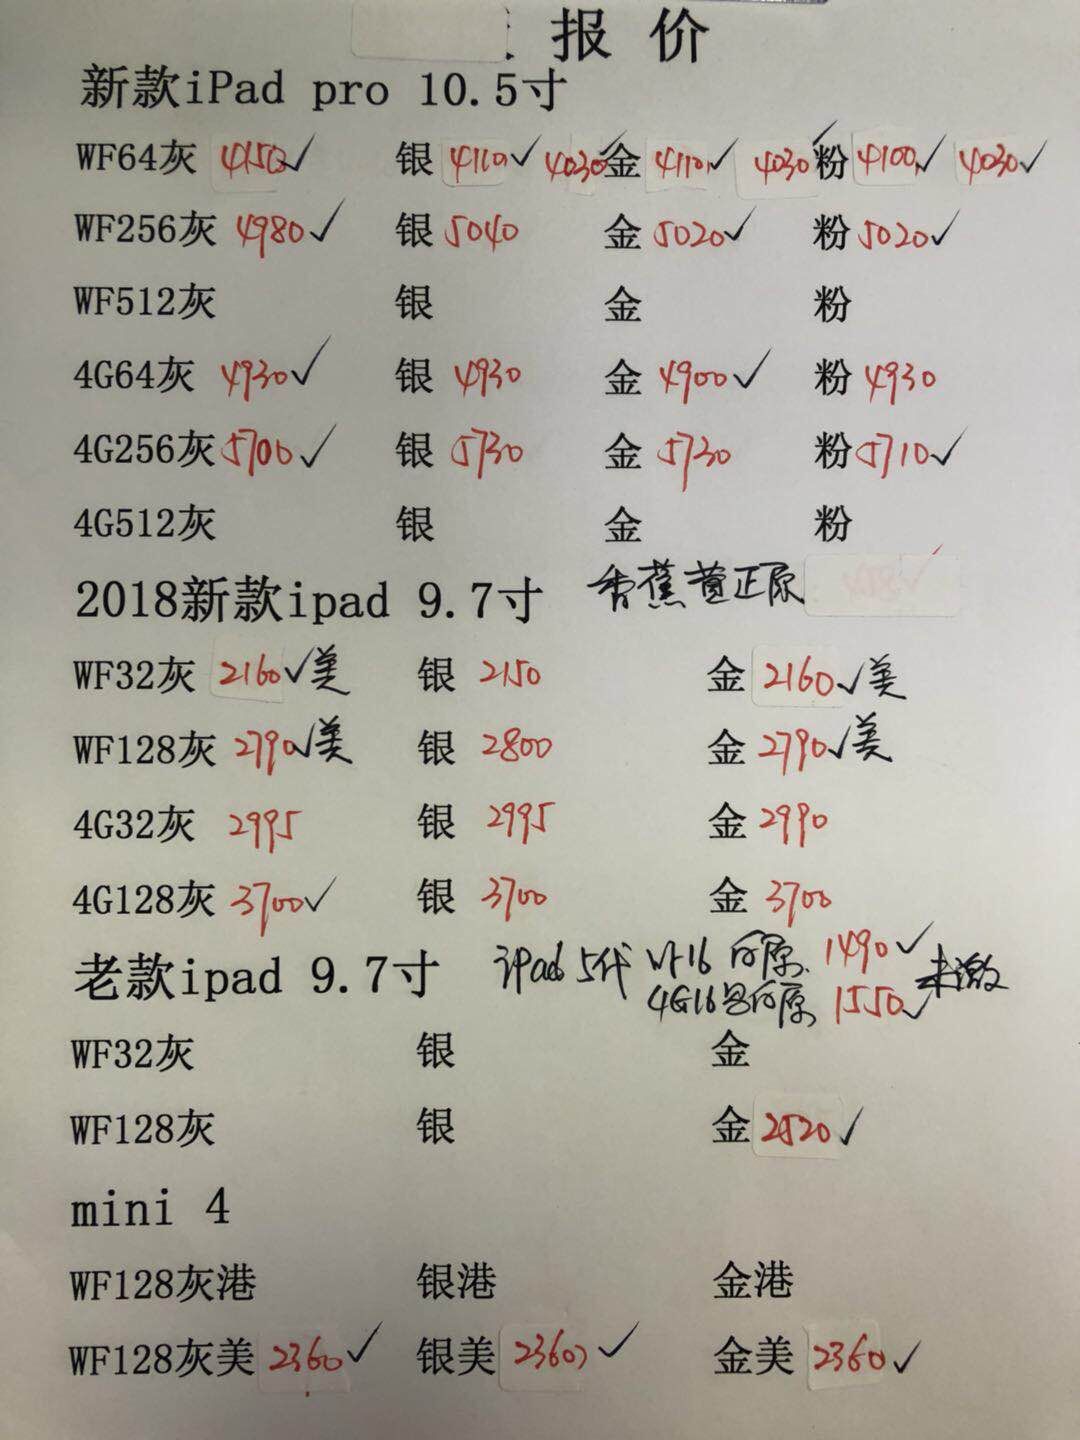 报价
新款iPad pro 10.5寸
WF64灰 4150✓ 银 4110✓ 4030✓ 金 4110✓ 4030✓ 粉 4100✓ 4030✓
WF256灰 4980✓ 银 5040 金 5020✓ 粉 5020✓
WF512灰 银 金 粉
4G64灰 4930✓ 银 4930 金 4900✓ 粉 4930
4G256灰 5700✓ 银 5730 金 5730 粉 5710✓
4G512灰 银 金 粉
2018新款ipad 9.7寸 香蕉 正原
WF32灰 2160✓美 银 2150 金 2160✓美
WF128灰 2790✓美 银 2800 金 2790✓美
4G32灰 2995 银 2995 金 2990
4G128灰 3700✓ 银 3700 金 3700
老款ipad 9.7寸 iPad 5代 WF16 原 1490✓ 未激
4G16 原 1550✓
WF32灰 银 金
WF128灰 银 金 2520✓
mini 4
WF128灰港 银港 金港
WF128灰美 2360✓ 银美 2360✓ 金美 2360✓